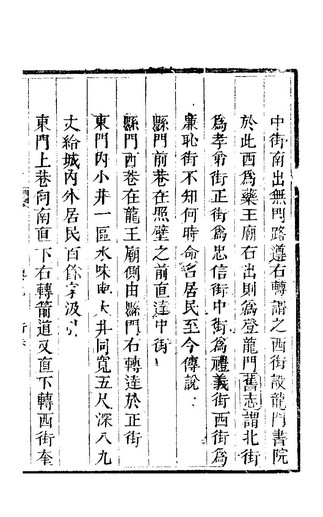 中街南出無門路遵右轉謂之西街設龍門書院
於此西為藥王廟右出則為登龍門舊志謂北街
為孝弟街正街為忠信街中街為禮義街西街為
廉恥街不知何時命名居民至今傳說
縣門前巷在照壁之前直達中街
縣門西巷在龍王廟側由縣門右轉達於正街
東門內小井一區水味與大井同寬五尺深八九
丈給城內外居民百餘家汲
東門上巷向南直下右轉箭道又直下轉西街奎